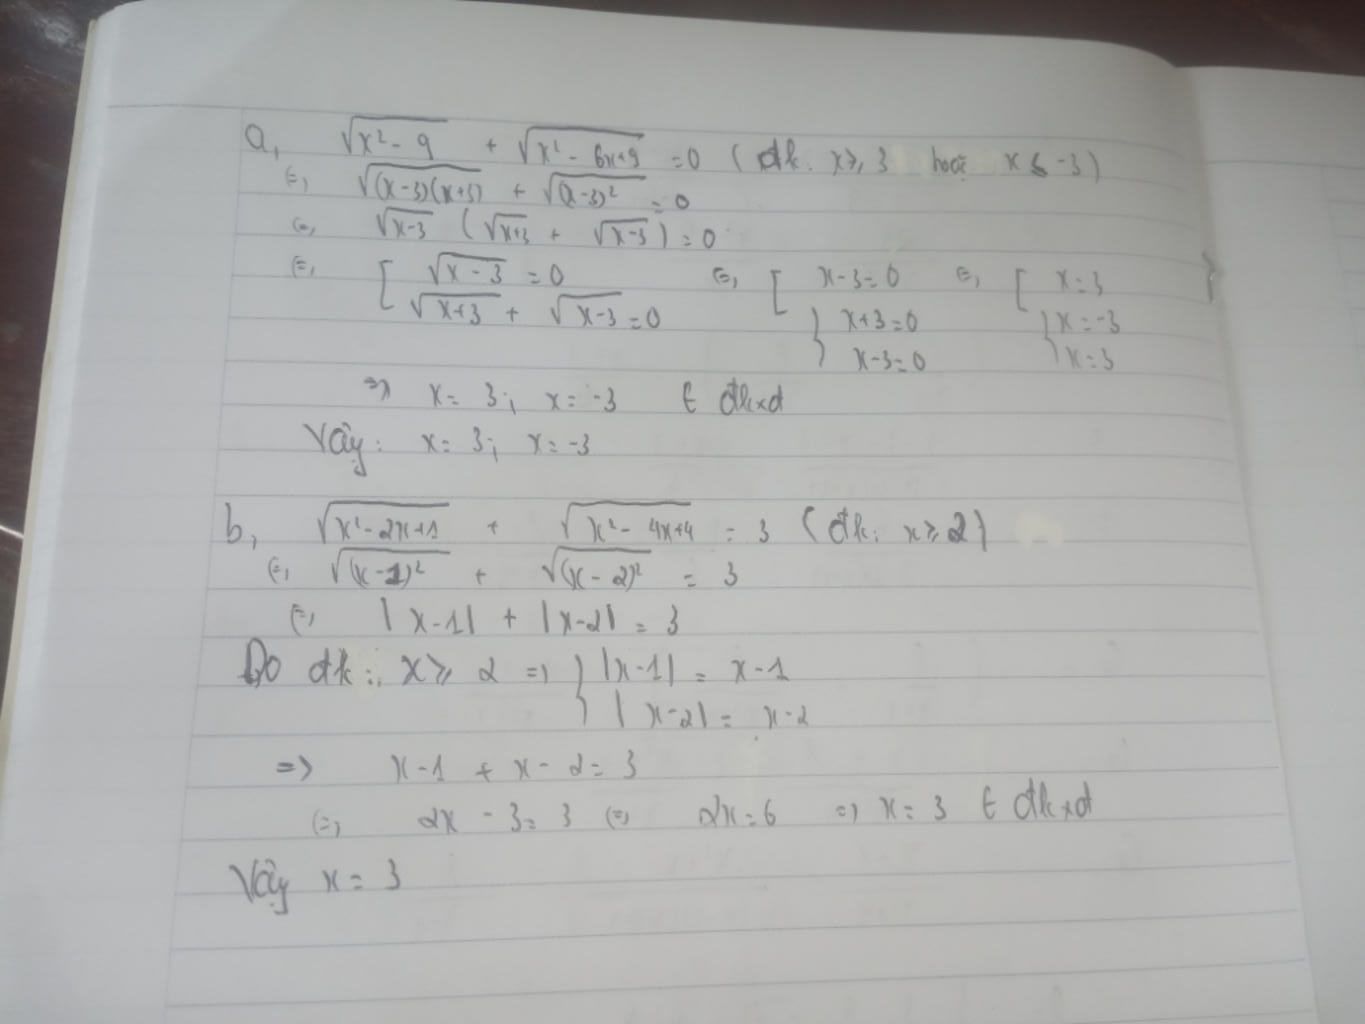 a, √(x² - 9) + √(x² - 6x+9) = 0 (đk: x ⩾ 3 hoặc x ≤ -3)
(=) √((x-3)(x+3)) + √((x-3)²) = 0
(=) √(x-3) (√(x+3) + √(x-3)) = 0
(=) [ √(x-3) = 0 (=) [ x-3=0 (=) [ x=3 }
√(x+3) + √(x-3) = 0 } x+3=0 } x=-3
x-3=0 x=3
=> x= 3; x= -3 ∈ đkxđ
Vậy: x= 3; x= -3
b, √(x²-2x+1) + √(x²-4x+4) = 3 (đk: x ⩾ 2)
(=) √((x-1)²) + √((x-2)²) = 3
(=) |x-1| + |x-2| = 3
Do đk: x ⩾ 2 => } |x-1| = x-1
|x-2| = x-2
=> x-1 + x-2 = 3
(=) 2x - 3 = 3 (=) 2x=6 => x= 3 ∈ đkxđ
Vậy x = 3